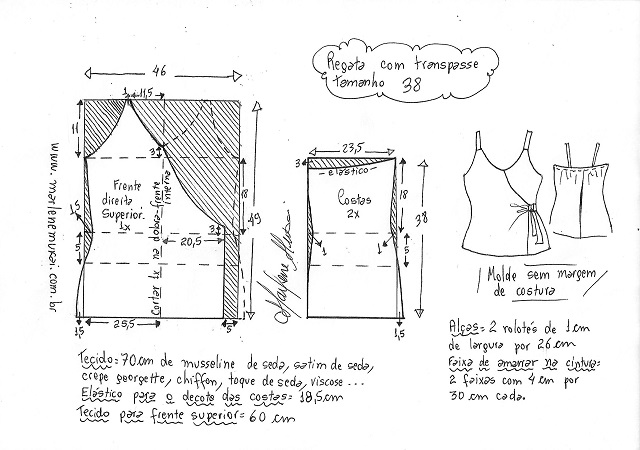 Regata com transpasse
tamanho 38
46
1
11,5
11
3
Frente
direita
superior.
1x
Cortar 1x na dobra-frente
inteira
18
49
1,5
5
3
20,5
1,5
25,5
5
www.marlenemukai.com.br
Marlene Mukai
23,5
3
elástico
Costas
2x
18
38
1
1
5
1,5
Molde sem margem
de costura
Tecido= 70cm de musseline de seda, satim de seda,
crepe georgette, chiffon, toque de seda, viscose ...
Elástico para o decote das costas= 18,5cm
Tecido para frente superior= 60 cm
Alças= 2 rolotês de 1cm
de largura por 26cm
Faixa de amarrar na cintura=
2 faixas com 4cm por
30cm cada.